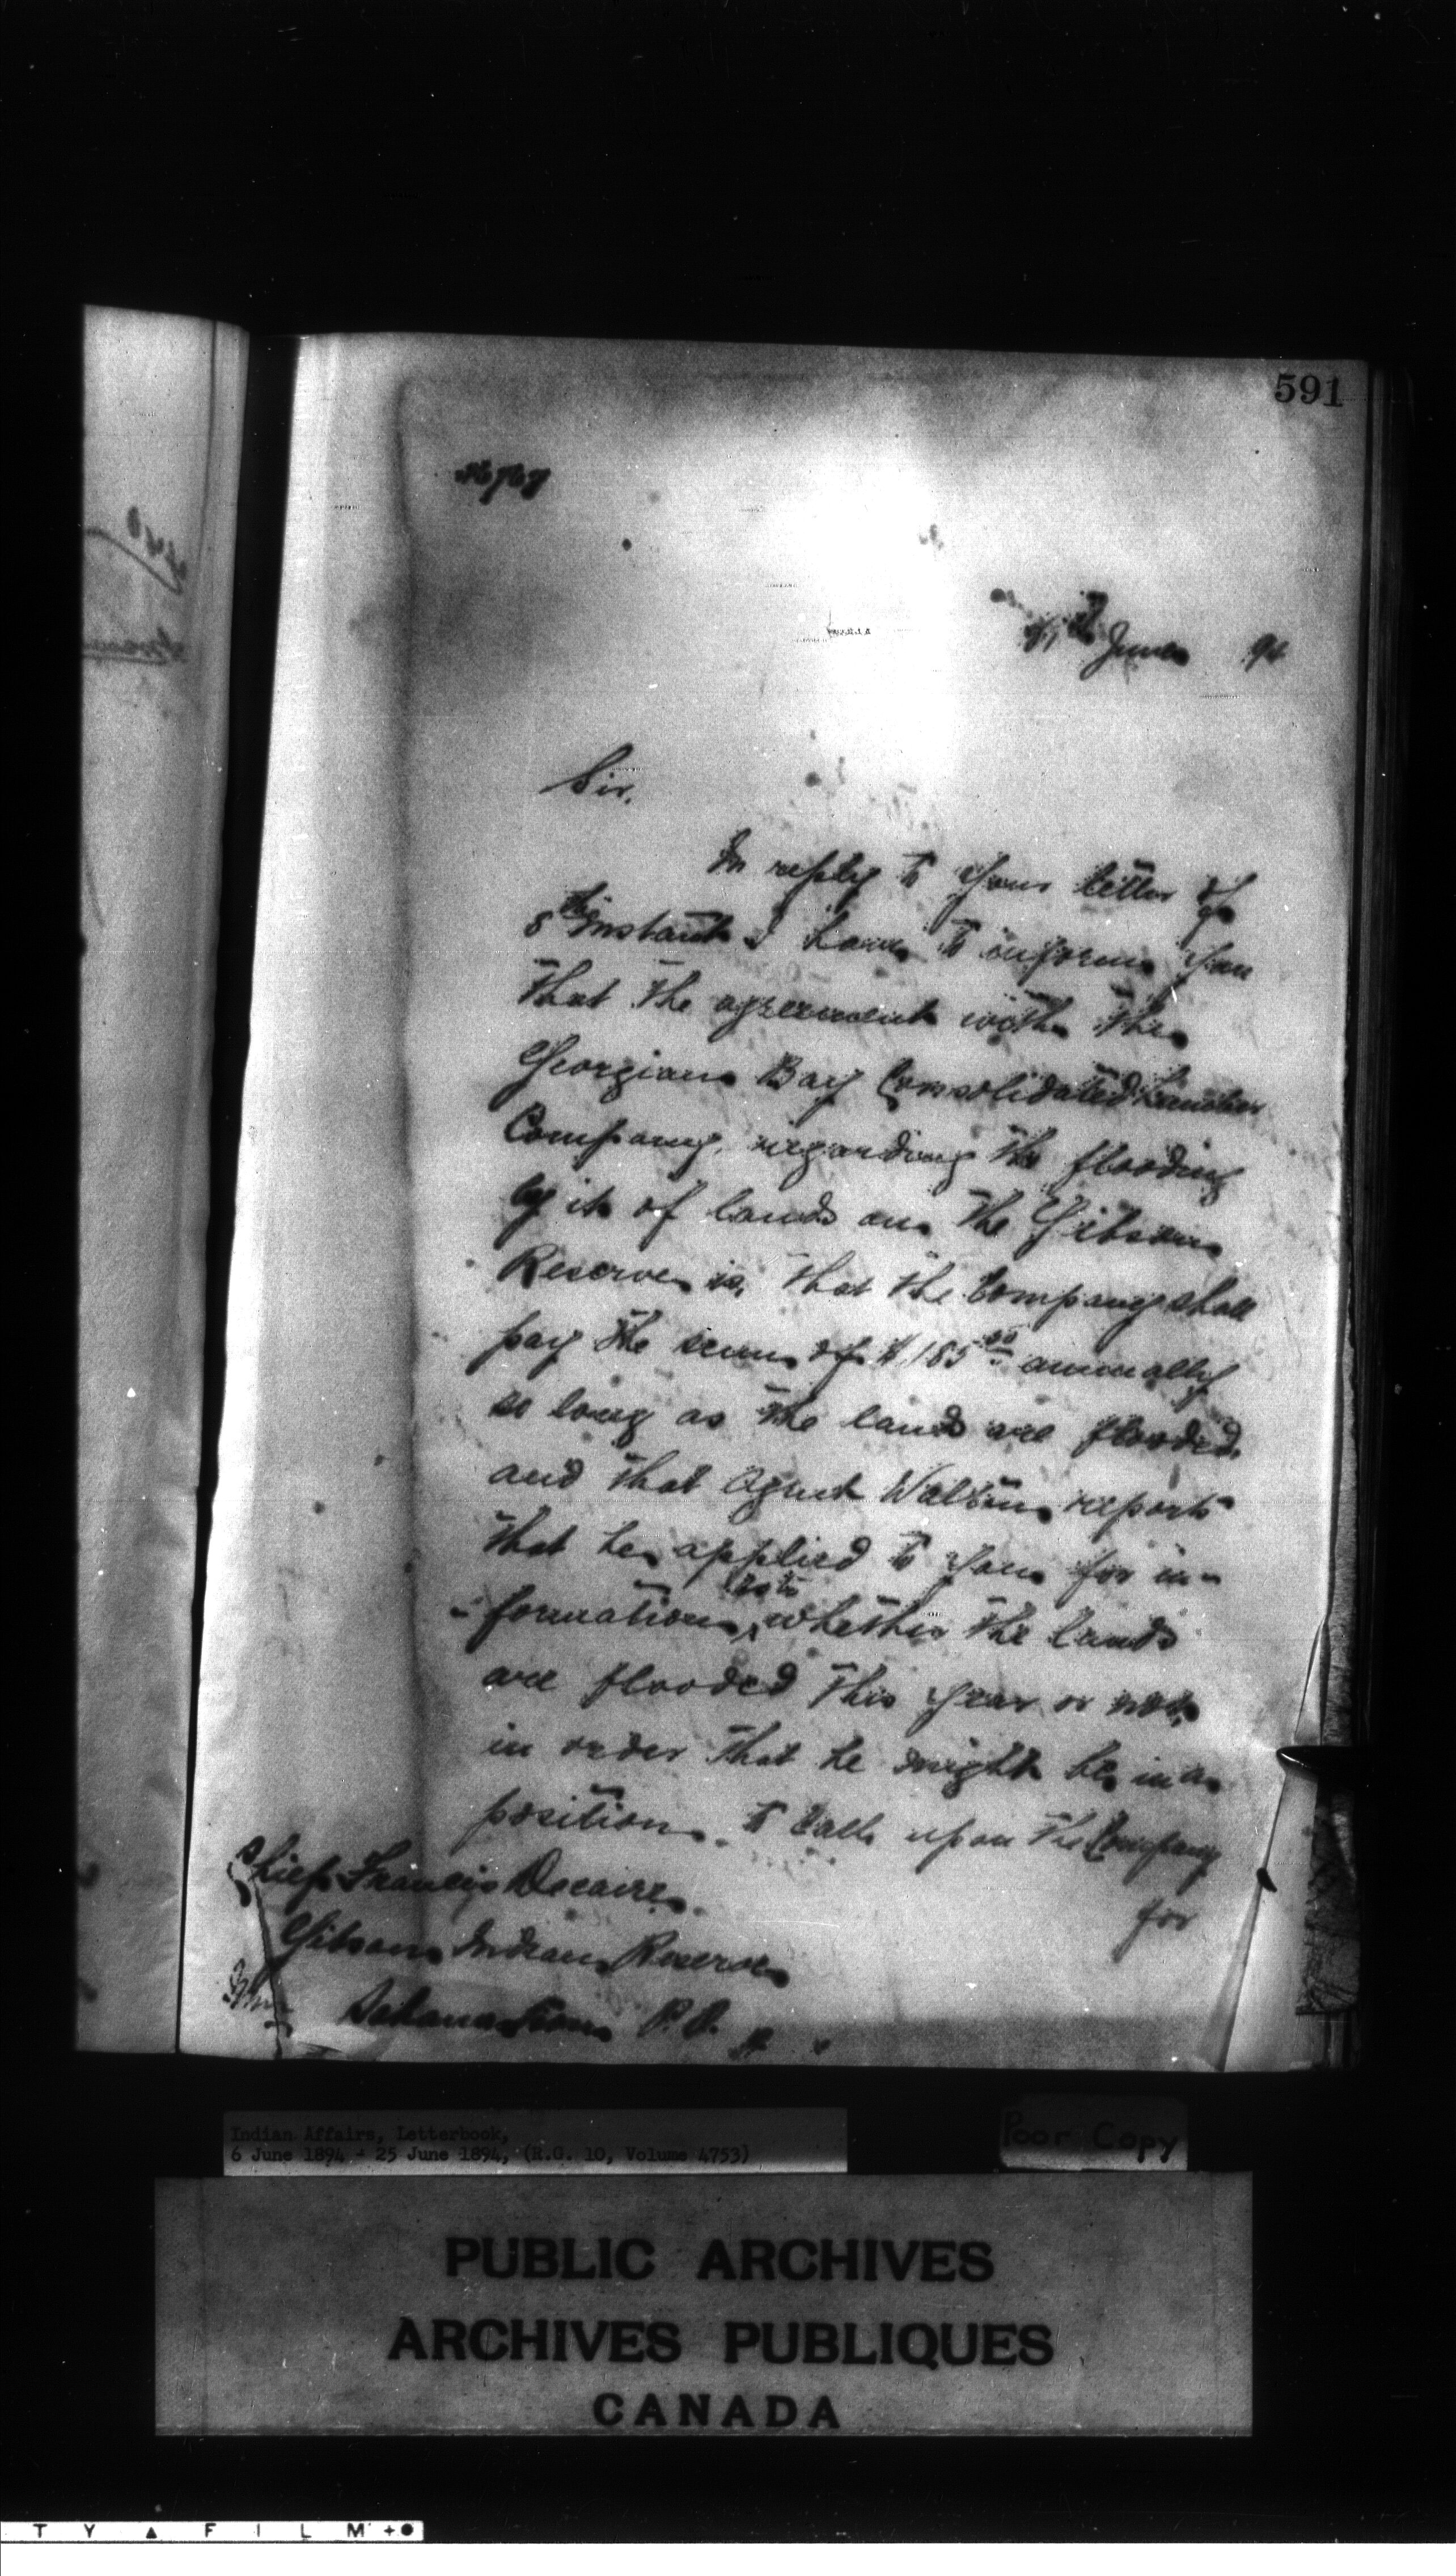 591
June 94
Sir,
In reply to your letter of
8th Instant I have to inform you
that the agreement with the
Georgian Bay Consolidated Lumber
Company, regarding the flooding
by it of lands on the Gibson
Reserve is, that the Company shall
pay the sum of $185.00 annually
so long as the lands are flooded,
and that Agent Walton reports
that he applied to you for in-
-formation, as to whether the lands
are flooded this year or not,
in order that he might be in a
position to call upon the Company
for
Chief Francis Decaire
Gibson Indian Reserve
Sahanatien P.O.
Indian Affairs, Letterbook,
6 June 1894 - 25 June 1894, (R.G. 10, Volume 4753)
Poor Copy
PUBLIC ARCHIVES
ARCHIVES PUBLIQUES
CANADA
T Y A F I L M